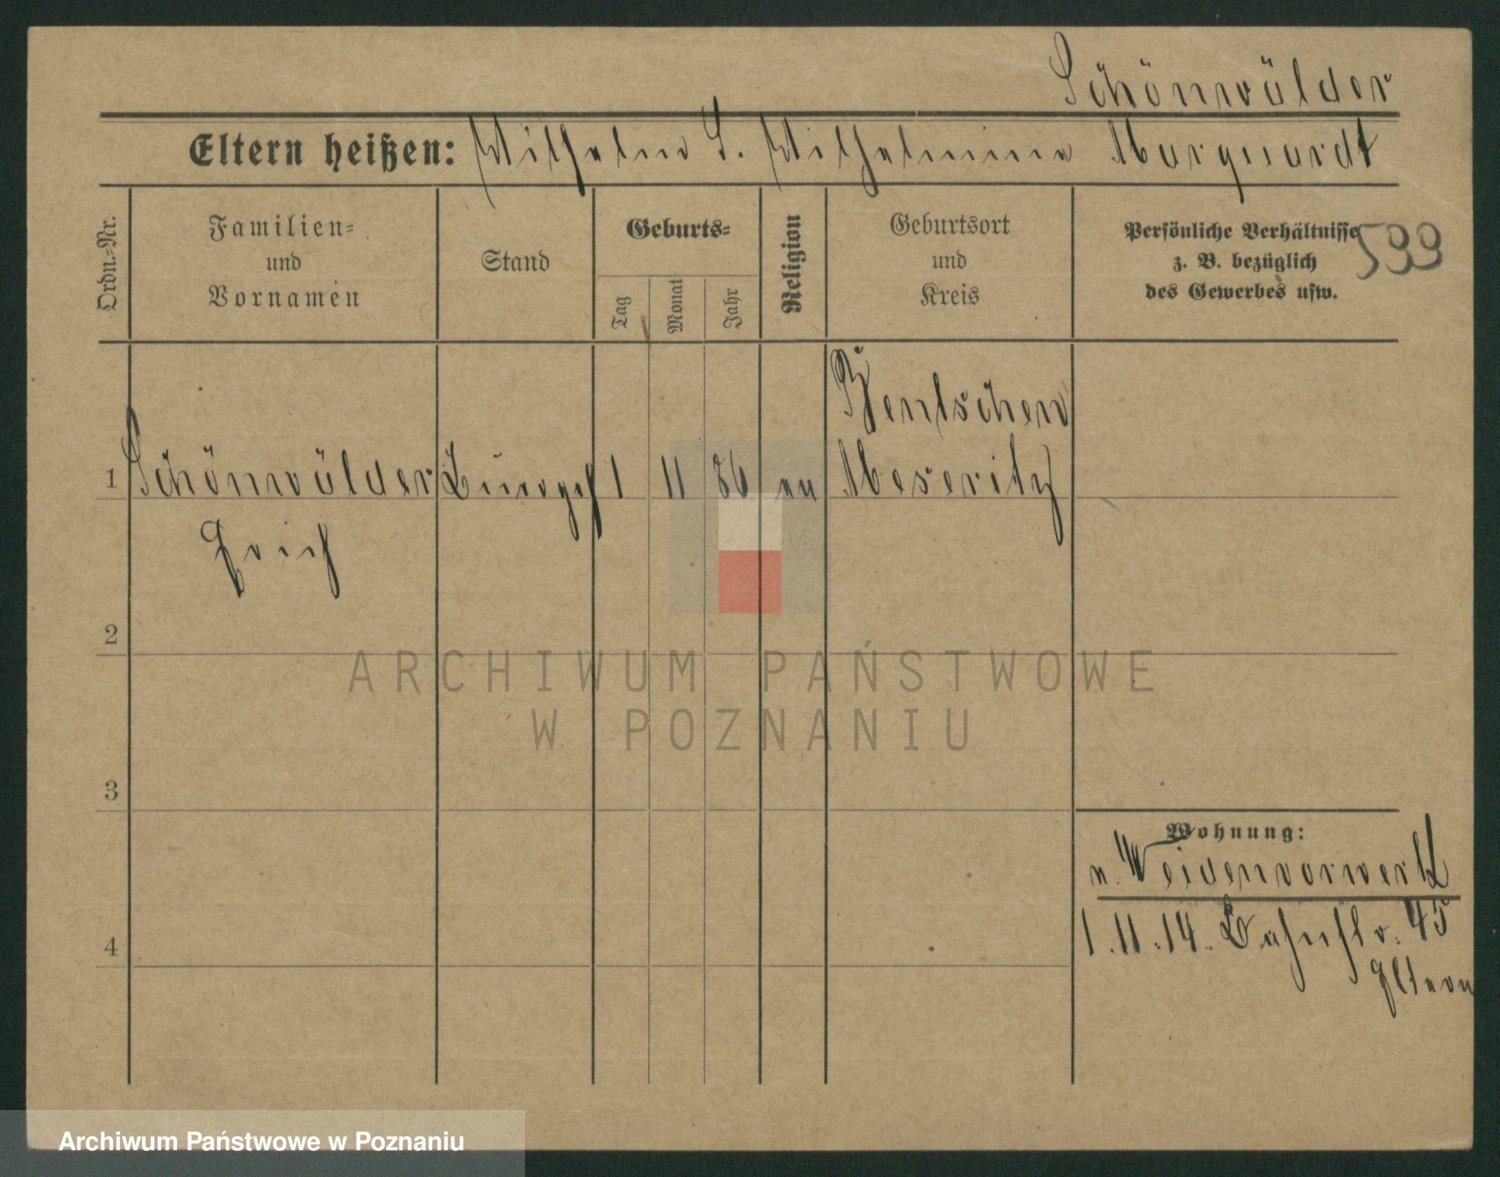 Schönwälder
Eltern heißen: Wilhelm S. Wilhelmine Marquardt
Ordn.-Nr.
Familien-
und
Vornamen
Stand
Geburts-
Tag
Monat
Jahr
Religion
Geburtsort
und
Kreis
Persönliche Verhältnisse
z. B. bezüglich
des Gewerbes usw.
599
1 Schönwälder
Erich
1 11 86 ev
Bentschen
Meseritz
2
3
4
Wohnung:
v. Weidenvorwerk
1.11.14. Bahnstr. 45
Eltern
ARCHIWUM PAŃSTWOWE
W POZNANIU
Archiwum Państwowe w Poznaniu